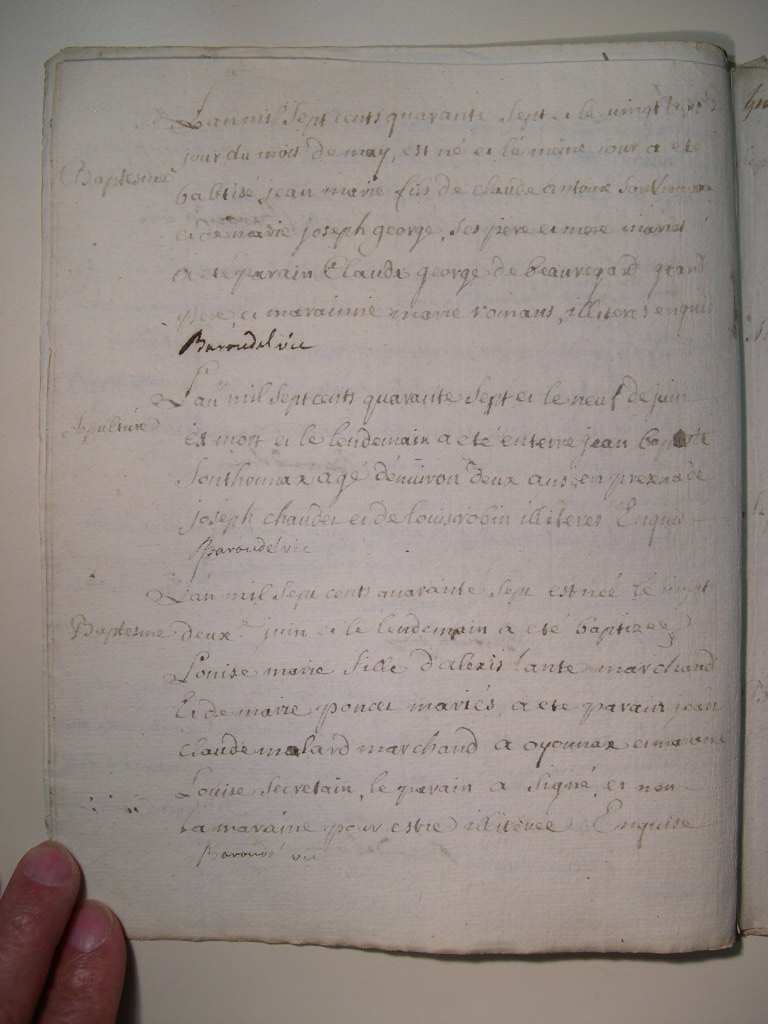 L'an mil sept cents quarante sept et le vingt
jour du mois de may, est né et le même jour a eté
Baptesme
babtisé jean marie fils de claude antoine
et de marie joseph george, ses pere et mere mariés
a eté parain Claude george de beauregard grand
pere et marainne marie romans, illiteres enquis
Baroudel vic
L'an mil sept cents quarante sept et le neuf de juin
Sepulture
es mort et le lendemain a eté enterré jean baptiste
Sonthonax agé d'enuiron deux ans en presence de
joseph chaudet et de louis robin illiteres Enquis
Baroudel vic
L'an mil sept cents quarante sept est neé le vingt
Baptesme deux juin et le lendemain a eté baptizeé
Louise marie fille d'alexis lante marchand
Et de marie poncet mariés, a eté parain jean
claude molard marchand a oyonnax et maraine
Louise secretain, le parain a signé, et non
la maraine pour estre illiteree Enquise
Baroudel vic